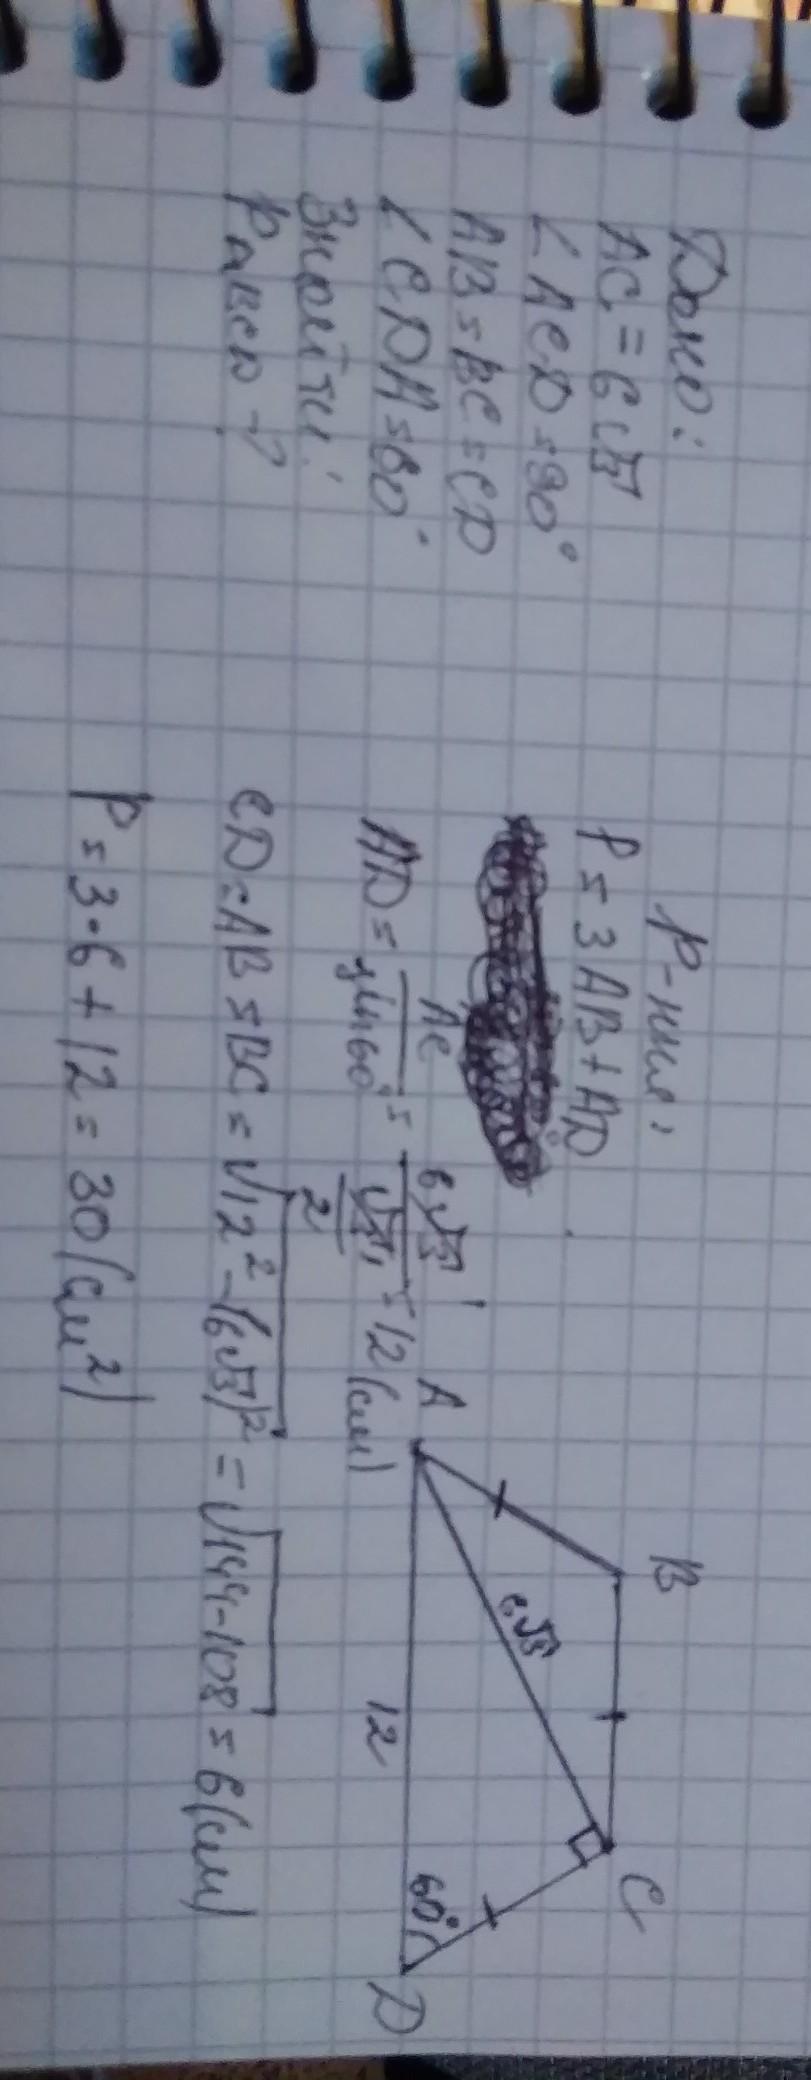 Дано:
AC = 6√3
∠ACD = 90°
AB = BC = CD
∠CDA = 60°
Знайти:
PABCD - ?
Р-ння:
P = 3AB + AD
AD = AC / sin60° = 6√3 / (√3 / 2) = 12 (см)
CD = AB = BC = √12² - (6√3)² = √144 - 108 = 6 (см)
P = 3·6 + 12 = 30 (см²)
A
B
C
D
6√3
12
60°